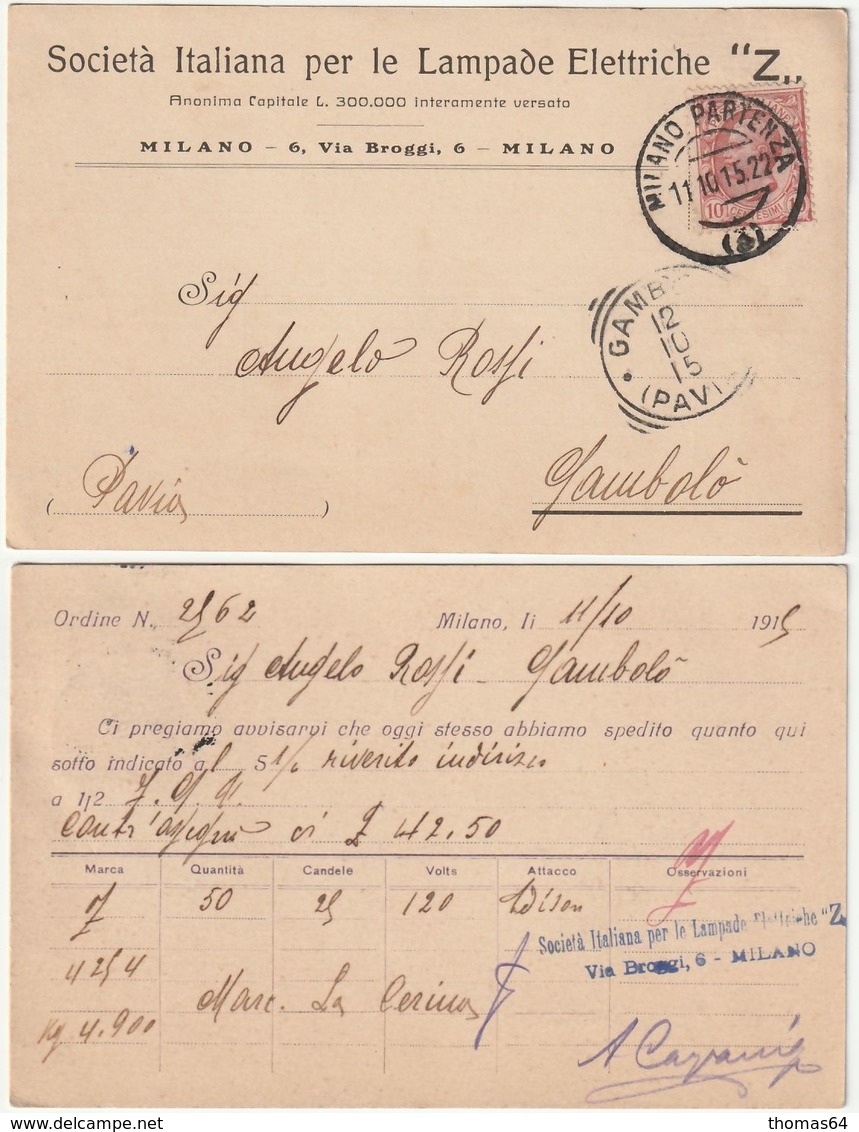 Società Italiana per le Lampade Elettriche "Z„
Anonima Capitale L. 300.000 interamente versato
MILANO - 6, Via Broggi, 6 - MILANO
MILANO PARTENZA
11 10 15.22
(3)
10 CENTESIMI 10
Sig
Angelo Rossi
GAMB
12
10
15
(PAV)
(Pavia)
Gambolò
Ordine N. 2562 Milano, li 11/10 1915
Sig Angelo Rossi - Gambolò
Ci pregiamo avvisarvi che oggi stesso abbiamo spedito quanto qui
sotto indicato al S/ riverito indirizzo
a 1|2
Contr'assegno di £ 42.50
Marca Quantità Candele Volts Attacco Osservazioni
Z 50 25 120 Edison
Società Italiana per le Lampade Elettriche "Z
Via Broggi, 6 - MILANO
4254
Marc. La
Kg 4.900
thomas64